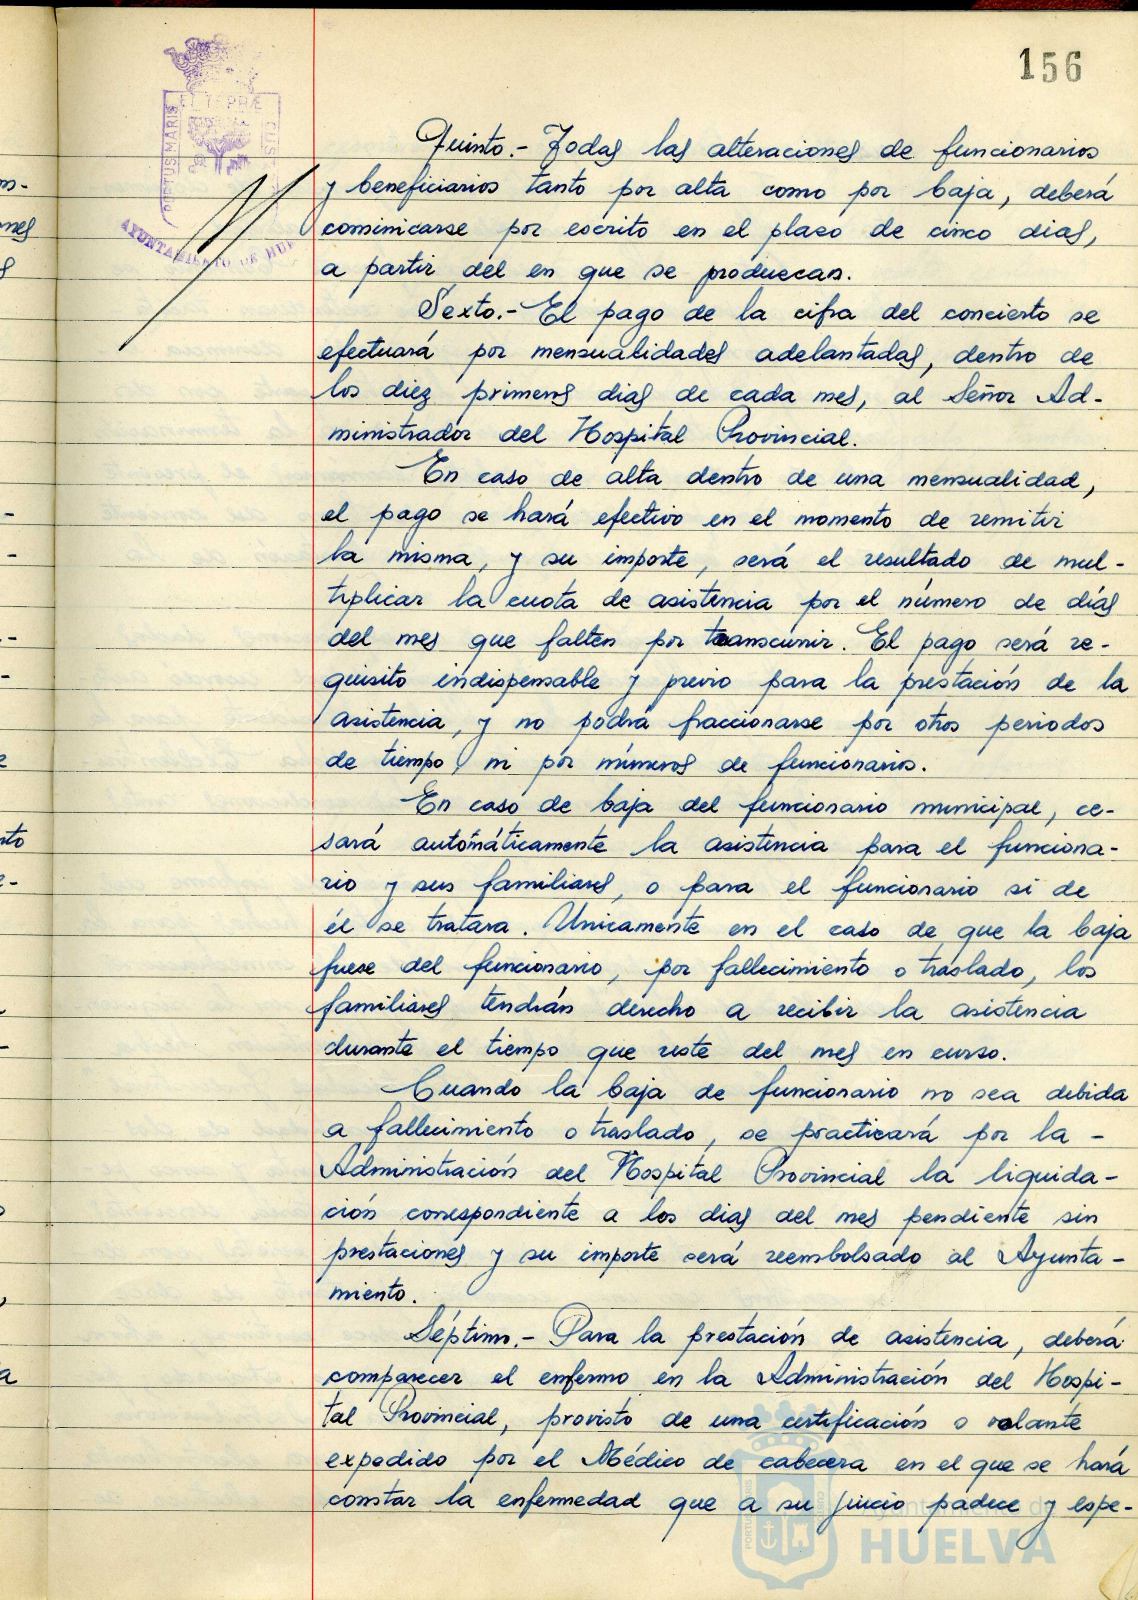 156
PORTUS MARIS
ET TERRÆ
CUS
AYUNTAMIENTO DE HUE
Quinto.- Todas las alteraciones de funcionarios
y beneficiarios tanto por alta como por baja, deberá
cominicarse por escrito en el plazo de cinco dias,
a partir del en que se produzcan.
Sexto.- El pago de la cifra del concierto se
efectuará por mensualidades adelantadas, dentro de
los diez primeros dias de cada mes, al Señor Ad-
ministrador del Hospital Provincial.
En caso de alta dentro de una mensualidad,
el pago se hará efectivo en el momento de remitir
la misma, y su importe, será el resultado de mul-
tiplicar la cuota de asistencia por el número de días
del mes que falten por transcurrir. El pago será re-
quisito indispensable y previo para la prestación de la
asistencia, y no podrá fraccionarse por otros periodos
de tiempo, ni por números de funcionarios.
En caso de baja del funcionario municipal, ce-
sará automáticamente la asistencia para el funciona-
rio y sus familiares, o para el funcionario si de
él se tratara. Unicamente en el caso de que la baja
fuese del funcionario, por fallecimiento o traslado, los
familiares tendrán derecho a recibir la asistencia
durante el tiempo que reste del mes en curso.
Cuando la baja de funcionario no sea debida
a fallecimiento o traslado, se practicará por la -
Administración del Hospital Provincial la liquida-
ción correspondiente a los dias del mes pendiente sin
prestaciones y su importe será reembolsado al Ayunta-
miento.
Séptimo.- Para la prestación de asistencia, deberá
comparecer el enfermo en la Administración del Hospi-
tal Provincial, provisto de una certificación o volante
expedido por el Médico de cabecera en el que se hará
constar la enfermedad que a su juicio padece y espe-
Ayuntamiento de
HUELVA